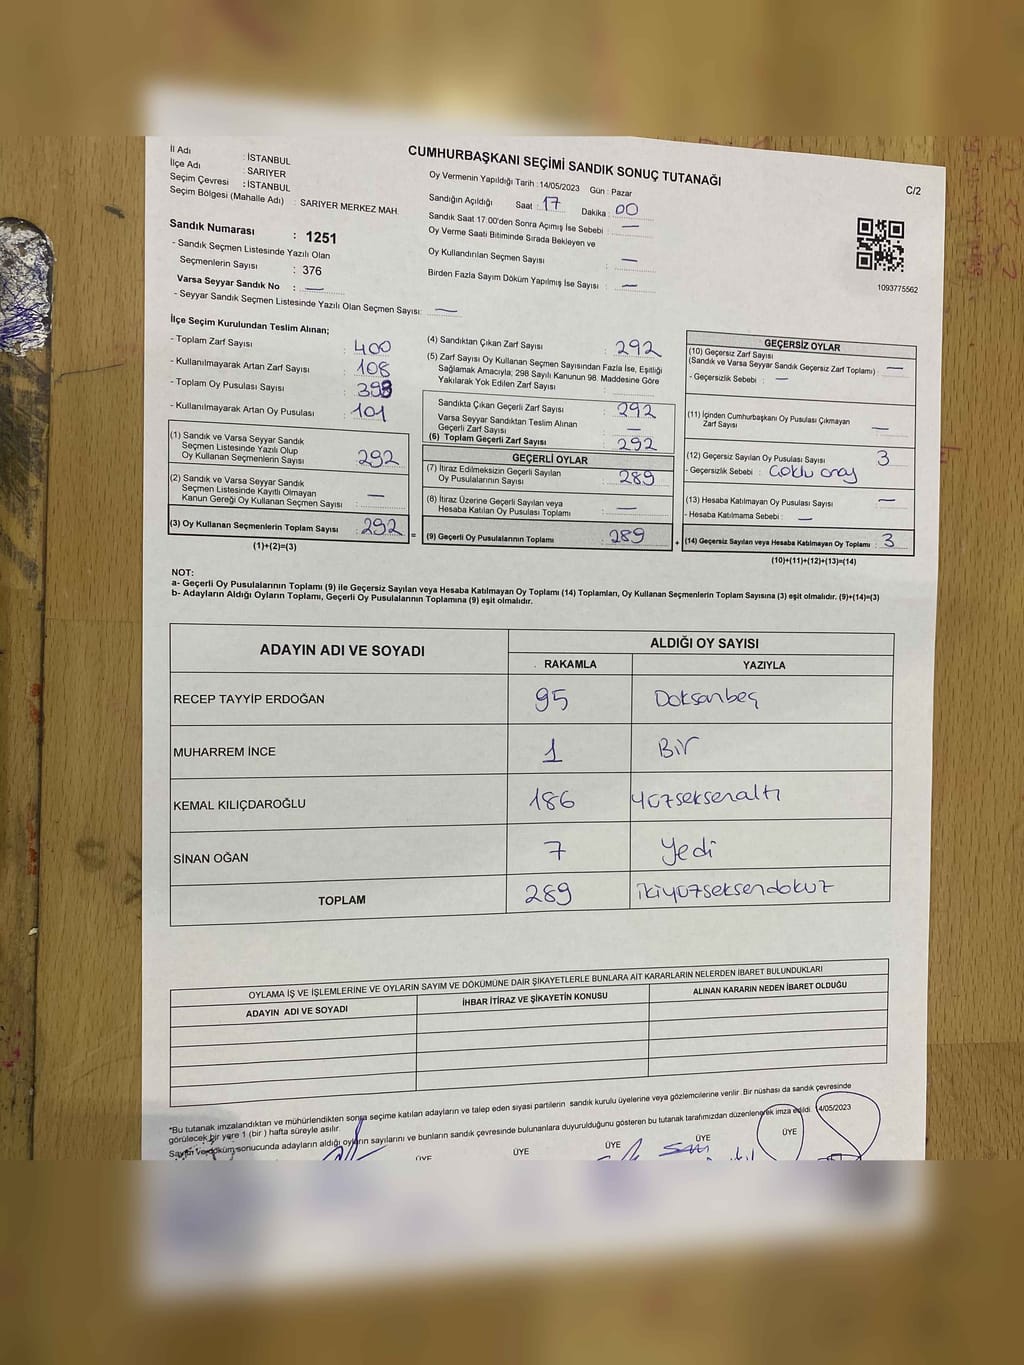 CUMHURBAŞKANI SEÇİMİ SANDIK SONUÇ TUTANAĞI
C/2
İl Adı : İSTANBUL
İlçe Adı : SARIYER
Seçim Çevresi : İSTANBUL
Seçim Bölgesi (Mahalle Adı) : SARIYER MERKEZ MAH.
Oy Vermenin Yapıldığı Tarih : 14/05/2023 Gün : Pazar
Sandığın Açıldığı Saat : 17 Dakika : 00
Sandık Saat 17:00'den Sonra Açımış İse Sebebi : —
Oy Verme Saati Bitiminde Sırada Bekleyen ve
Oy Kullandırılan Seçmen Sayısı : —
Birden Fazla Sayım Döküm Yapılmış İse Sayısı : —
1093775562
Sandık Numarası : 1251
- Sandık Seçmen Listesinde Yazılı Olan
Seçmenlerin Sayısı : 376
Varsa Seyyar Sandık No : —
- Seyyar Sandık Seçmen Listesinde Yazılı Olan Seçmen Sayısı: —
İlçe Seçim Kurulundan Teslim Alınan;
- Toplam Zarf Sayısı : 400
- Kullanılmayarak Artan Zarf Sayısı : 108
- Toplam Oy Pusulası Sayısı :
- Kullanılmayarak Artan Oy Pusulası : 101
(1) Sandık ve Varsa Seyyar Sandık
Seçmen Listesinde Yazılı Olup
Oy Kullanan Seçmenlerin Sayısı : 292
(2) Sandık ve Varsa Seyyar Sandık
Seçmen Listesinde Kayıtlı Olmayan
Kanun Gereği Oy Kullanan Seçmen Sayısı : —
(3) Oy Kullanan Seçmenlerin Toplam Sayısı : 292
(1)+(2)=(3)
(4) Sandıktan Çıkan Zarf Sayısı : 292
(5) Zarf Sayısı Oy Kullanan Seçmen Sayısından Fazla İse, Eşitliği
Sağlamak Amacıyla; 298 Sayılı Kanunun 98. Maddesine Göre
Yakılarak Yok Edilen Zarf Sayısı :
Sandıkta Çıkan Geçerli Zarf Sayısı : 292
Varsa Seyyar Sandıktan Teslim Alınan
Geçerli Zarf Sayısı : —
(6) Toplam Geçerli Zarf Sayısı : 292
GEÇERLİ OYLAR
(7) İtiraz Edilmeksizin Geçerli Sayılan
Oy Pusulalarının Sayısı : 289
(8) İtiraz Üzerine Geçerli Sayılan veya
Hesaba Katılan Oy Pusulası Toplamı : —
(9) Geçerli Oy Pusulalarının Toplamı : 289
GEÇERSİZ OYLAR
(10) Geçersiz Zarf Sayısı
(Sandık ve Varsa Seyyar Sandık Geçersiz Zarf Toplamı) : —
- Geçersizlik Sebebi : —
(11) İçinden Cumhurbaşkanı Oy Pusulası Çıkmayan
Zarf Sayısı : —
(12) Geçersiz Sayılan Oy Pusulası Sayısı : 3
- Geçersizlik Sebebi : Çoklu onay
(13) Hesaba Katılmayan Oy Pusulası Sayısı : —
- Hesaba Katılmama Sebebi : —
(14) Geçersiz Sayılan veya Hesaba Katılmayan Oy Toplamı : 3
(10)+(11)+(12)+(13)=(14)
NOT:
a- Geçerli Oy Pusulalarının Toplamı (9) ile Geçersiz Sayılan veya Hesaba Katılmayan Oy Toplamı (14) Toplamları, Oy Kullanan Seçmenlerin Toplam Sayısına (3) eşit olmalıdır. (9)+(14)=(3)
b- Adayların Aldığı Oyların Toplamı, Geçerli Oy Pusulalarının Toplamına (9) eşit olmalıdır.
ADAYIN ADI VE SOYADI ALDIĞI OY SAYISI
RAKAMLA YAZIYLA
RECEP TAYYİP ERDOĞAN 95 Doksanbeş
MUHARREM İNCE 1 Bir
KEMAL KILIÇDAROĞLU 186 yüzseksenaltı
SİNAN OĞAN 7 Yedi
TOPLAM 289 ikiyüzseksendokuz
OYLAMA İŞ VE İŞLEMLERİNE VE OYLARIN SAYIM VE DÖKÜMÜNE DAİR ŞİKAYETLERLE BUNLARA AİT KARARLARIN NELERDEN İBARET BULUNDUKLARI
ADAYIN ADI VE SOYADI İHBAR İTİRAZ VE ŞİKAYETİN KONUSU ALINAN KARARIN NEDEN İBARET OLDUĞU
*Bu tutanak imzalandıktan ve mühürlendikten sonra seçime katılan adayların ve talep eden siyasi partilerin sandık kurulu üyelerine veya gözlemcilerine verilir. Bir nüshası da sandık çevresinde
görülecek bir yere 1 (bir) hafta süreyle asılır.
Sayım ve döküm sonucunda adayların aldığı oyların sayılarını ve bunların sandık çevresinde bulunanlara duyurulduğunu gösteren bu tutanak tarafımızdan düzenlenerek imza edildi. 14/05/2023
ÜYE ÜYE ÜYE ÜYE ÜYE